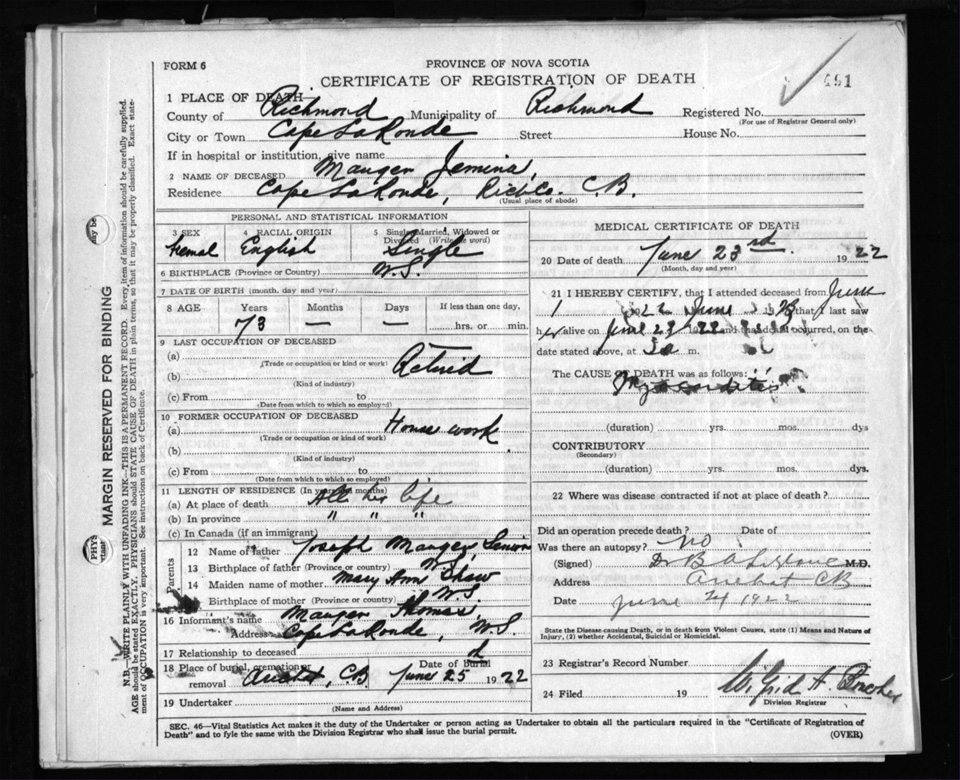 FORM 6
PROVINCE OF NOVA SCOTIA
CERTIFICATE OF REGISTRATION OF DEATH
491
1 PLACE OF DEATH—
County of Richmond Municipality of Richmond Registered No.
(For use of Registrar General only)
City or Town Cape LaRonde Street House No.
If in hospital or institution, give name
2 NAME OF DECEASED Mauger Jemina,
Residence Cape LaRonde, Rich Co. C.B.
(Usual place of abode)
PERSONAL AND STATISTICAL INFORMATION
3 SEX 4 RACIAL ORIGIN 5 Single, Married, Widowed or Divorced (Write the word)
Femal English Single
6 BIRTHPLACE (Province or Country) N.S.
7 DATE OF BIRTH (month, day and year)
8 AGE Years Months Days If less than one day,
73 — — hrs. or min.
9 LAST OCCUPATION OF DECEASED
(a) Retired
(Trade or occupation or kind or work)
(b)
(Kind of industry)
(c) From to
(Date from which to which so employed)
10 FORMER OCCUPATION OF DECEASED
(a) House work
(Trade or occupation or kind of work)
(b)
(Kind of industry)
(c) From to
(Date from which to which so employed)
11 LENGTH OF RESIDENCE (In years and months)
(a) At place of death All her life
(b) In province " " "
(c) In Canada (if an immigrant)
Parents
12 Name of father Joseph Mauger Senior
13 Birthplace of father (Province or country) N.S.
14 Maiden name of mother Mary Ann Shaw
Birthplace of mother (Province or country) N.S.
16 Informant's name Mauger Thomas,
Address Cape LaRonde, N.S.
17 Relationship to deceased
18 Place of burial, cremation or removal Arichat, C.B. Date of burial June 25 1922
19 Undertaker
(Name and Address)
MEDICAL CERTIFICATE OF DEATH
20 Date of death June 23rd 1922
(Month, day and year)
21 I HEREBY CERTIFY, that I attended deceased from June
22 June that I last saw
her alive on June 23 1922 and death occurred, on the
date stated above, at m.
The CAUSE OF DEATH was as follows:
Myocarditis
(duration) yrs. mos. dys
CONTRIBUTORY
(Secondary)
(duration) yrs. mos. dys.
22 Where was disease contracted if not at place of death?
Did an operation precede death? Date of
Was there an autopsy? No
(Signed) Dr B A M.D.
Address Arichat CB
Date June 1922
State the Disease causing Death, or in death from Violent Causes, state (1) Means and Nature of Injury, (2) whether Accidental, Suicidal or Homicidal.
23 Registrar's Record Number
24 Filed 19
Division Registrar
SEC. 46—Vital Statistics Act makes it the duty of the Undertaker or person acting as Undertaker to obtain all the particulars required in the "Certificate of Registration of
Death" and to fyle the same with the Division Registrar who shall issue the burial permit.
(OVER)
MARGIN RESERVED FOR BINDING
N.B.—WRITE PLAINLY WITH UNFADING INK—THIS IS A PERMANENT RECORD. Every item of information should be carefully supplied.
AGE should be stated EXACTLY. PHYSICIANS should STATE CAUSE OF DEATH in plain terms, so that it may be properly classified. Exact state-
ment of OCCUPATION is very important. See instructions on back of Certificate.
may be
PHYS